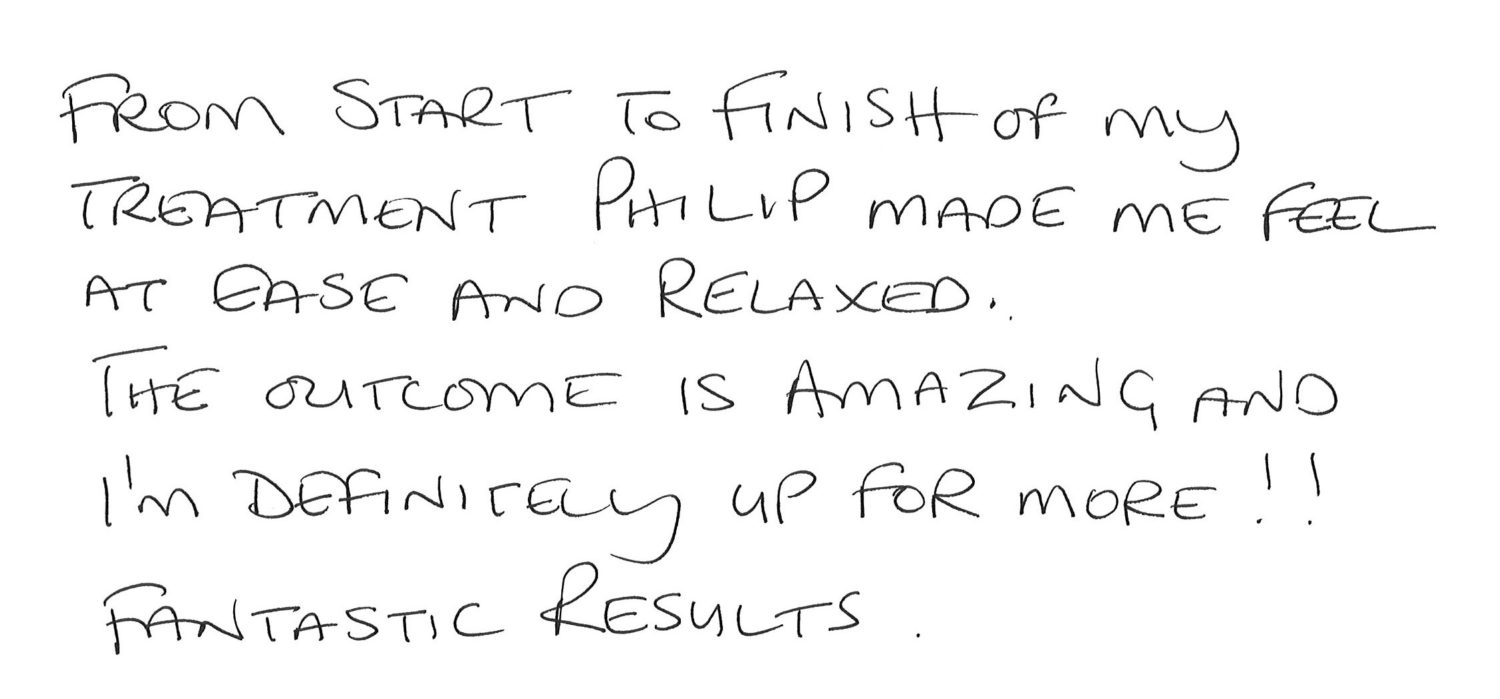 FROM START TO FINISH OF MY
TREATMENT PHILIP MADE ME FEEL
AT EASE AND RELAXED.
THE OUTCOME IS AMAZING AND
I'M DEFINITELY UP FOR MORE!!
FANTASTIC RESULTS.